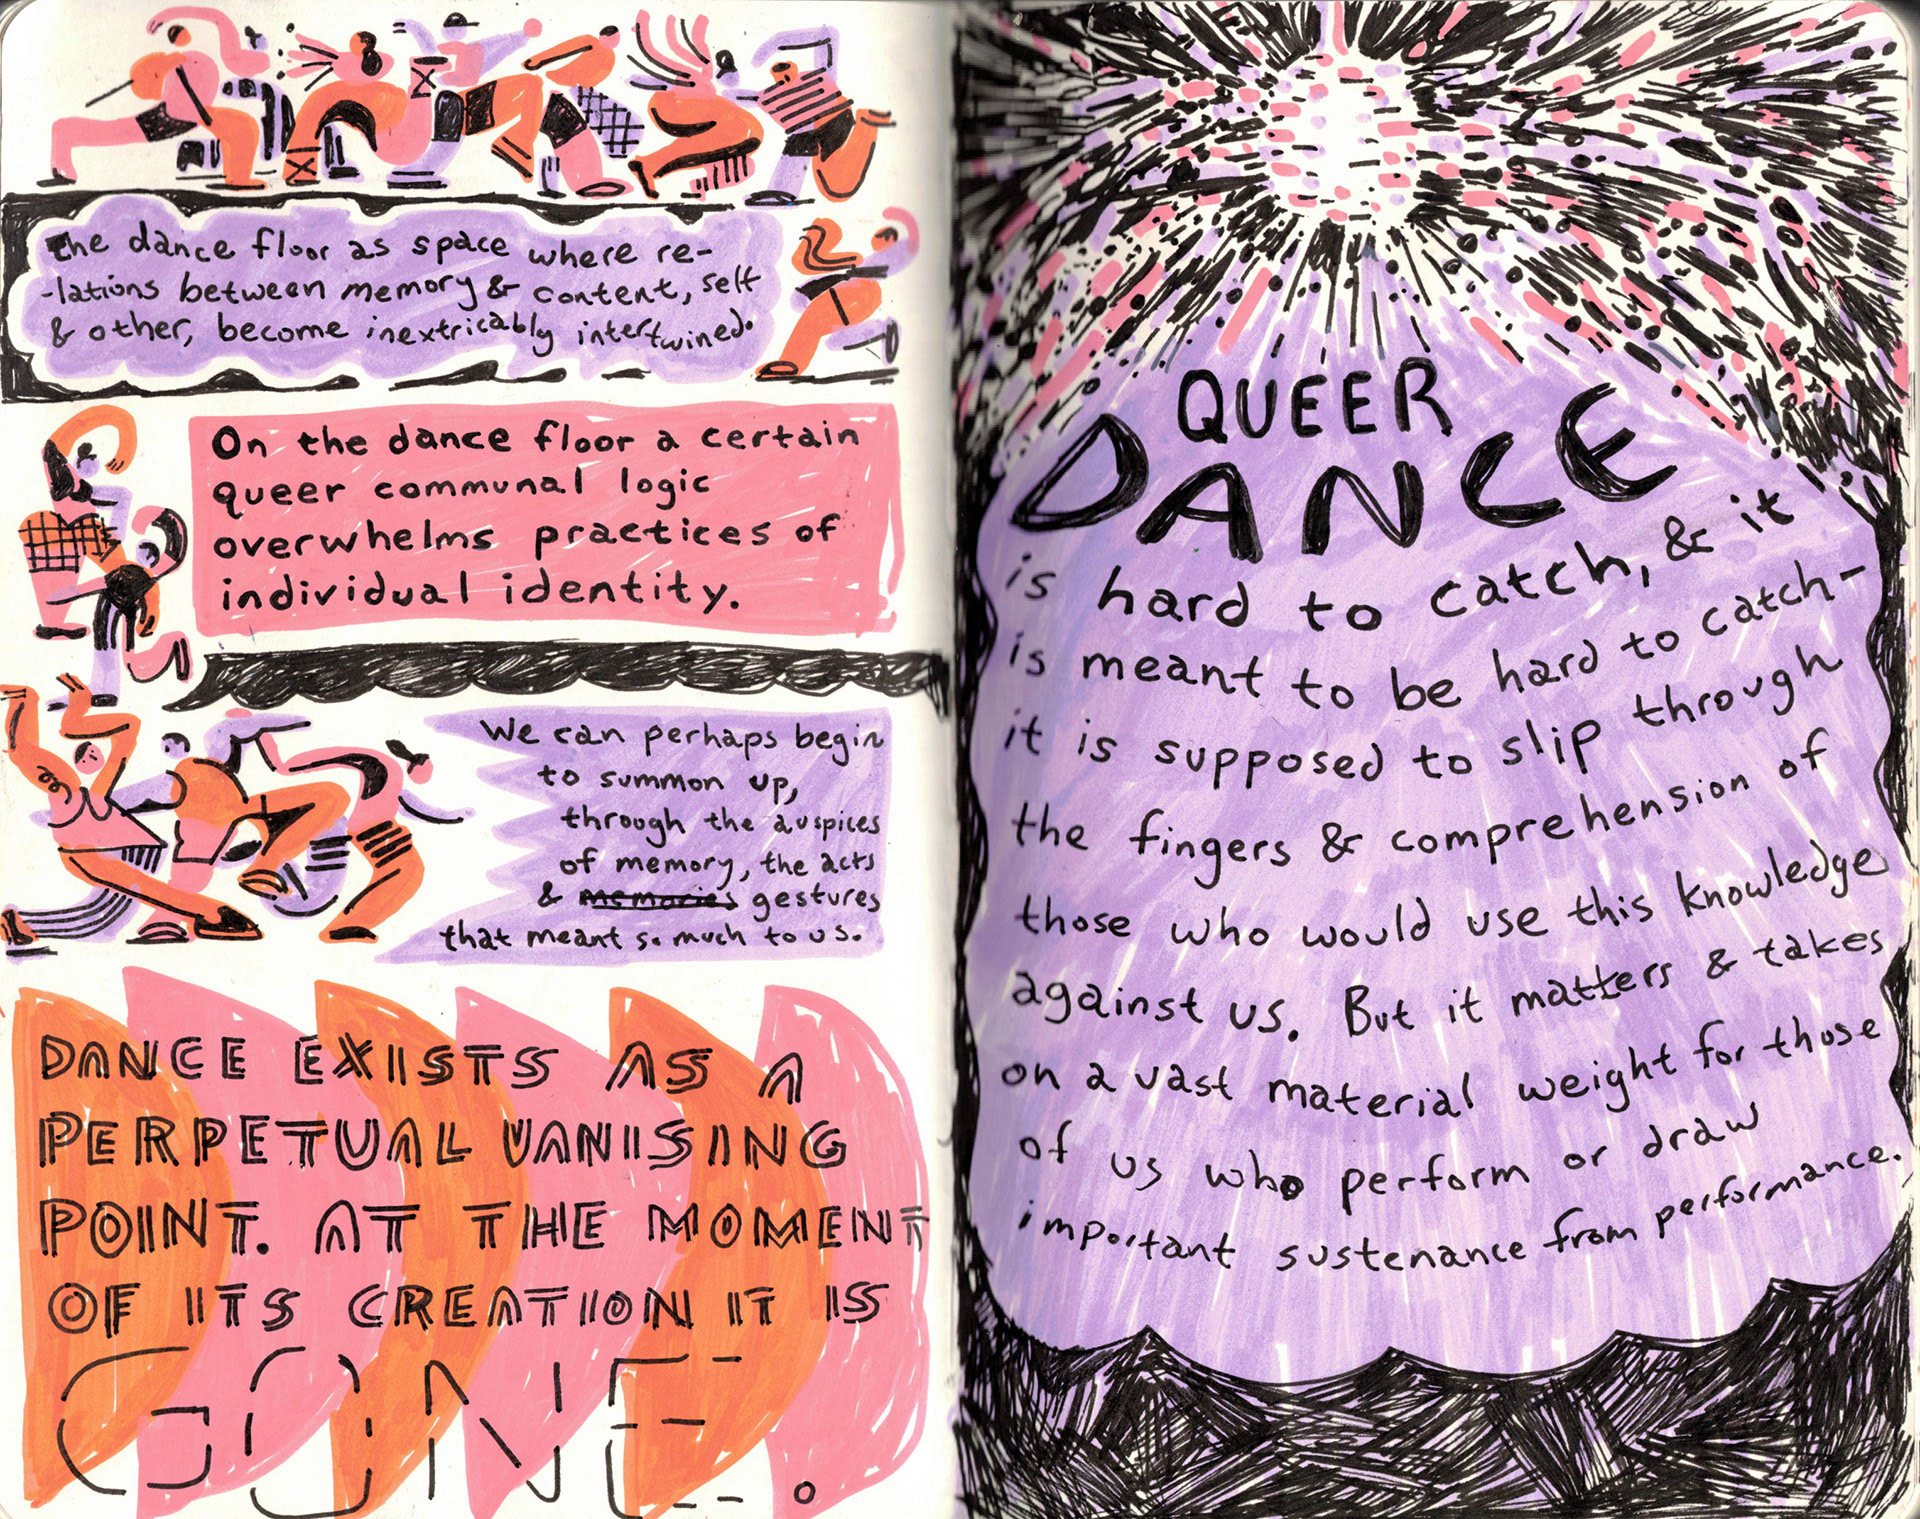 the dance floor as space where re-
-lations between memory & content, self
& other, become inextricably intertwined.
On the dance floor a certain
queer communal logic
overwhelms practices of
individual identity.
We can perhaps begin
to summon up,
through the auspices
of memory, the acts
& memories gestures
that meant so much to us.
DANCE EXISTS AS A
PERPETUAL VANISING
POINT. AT THE MOMENT
OF ITS CREATION IT IS
GONE.
QUEER
DANCE
is hard to catch, & it
is meant to be hard to catch-
it is supposed to slip through
the fingers & comprehension of
those who would use this knowledge
against us. But it matters & takes
on a vast material weight for those
of us who perform or draw
important sustenance from performance.